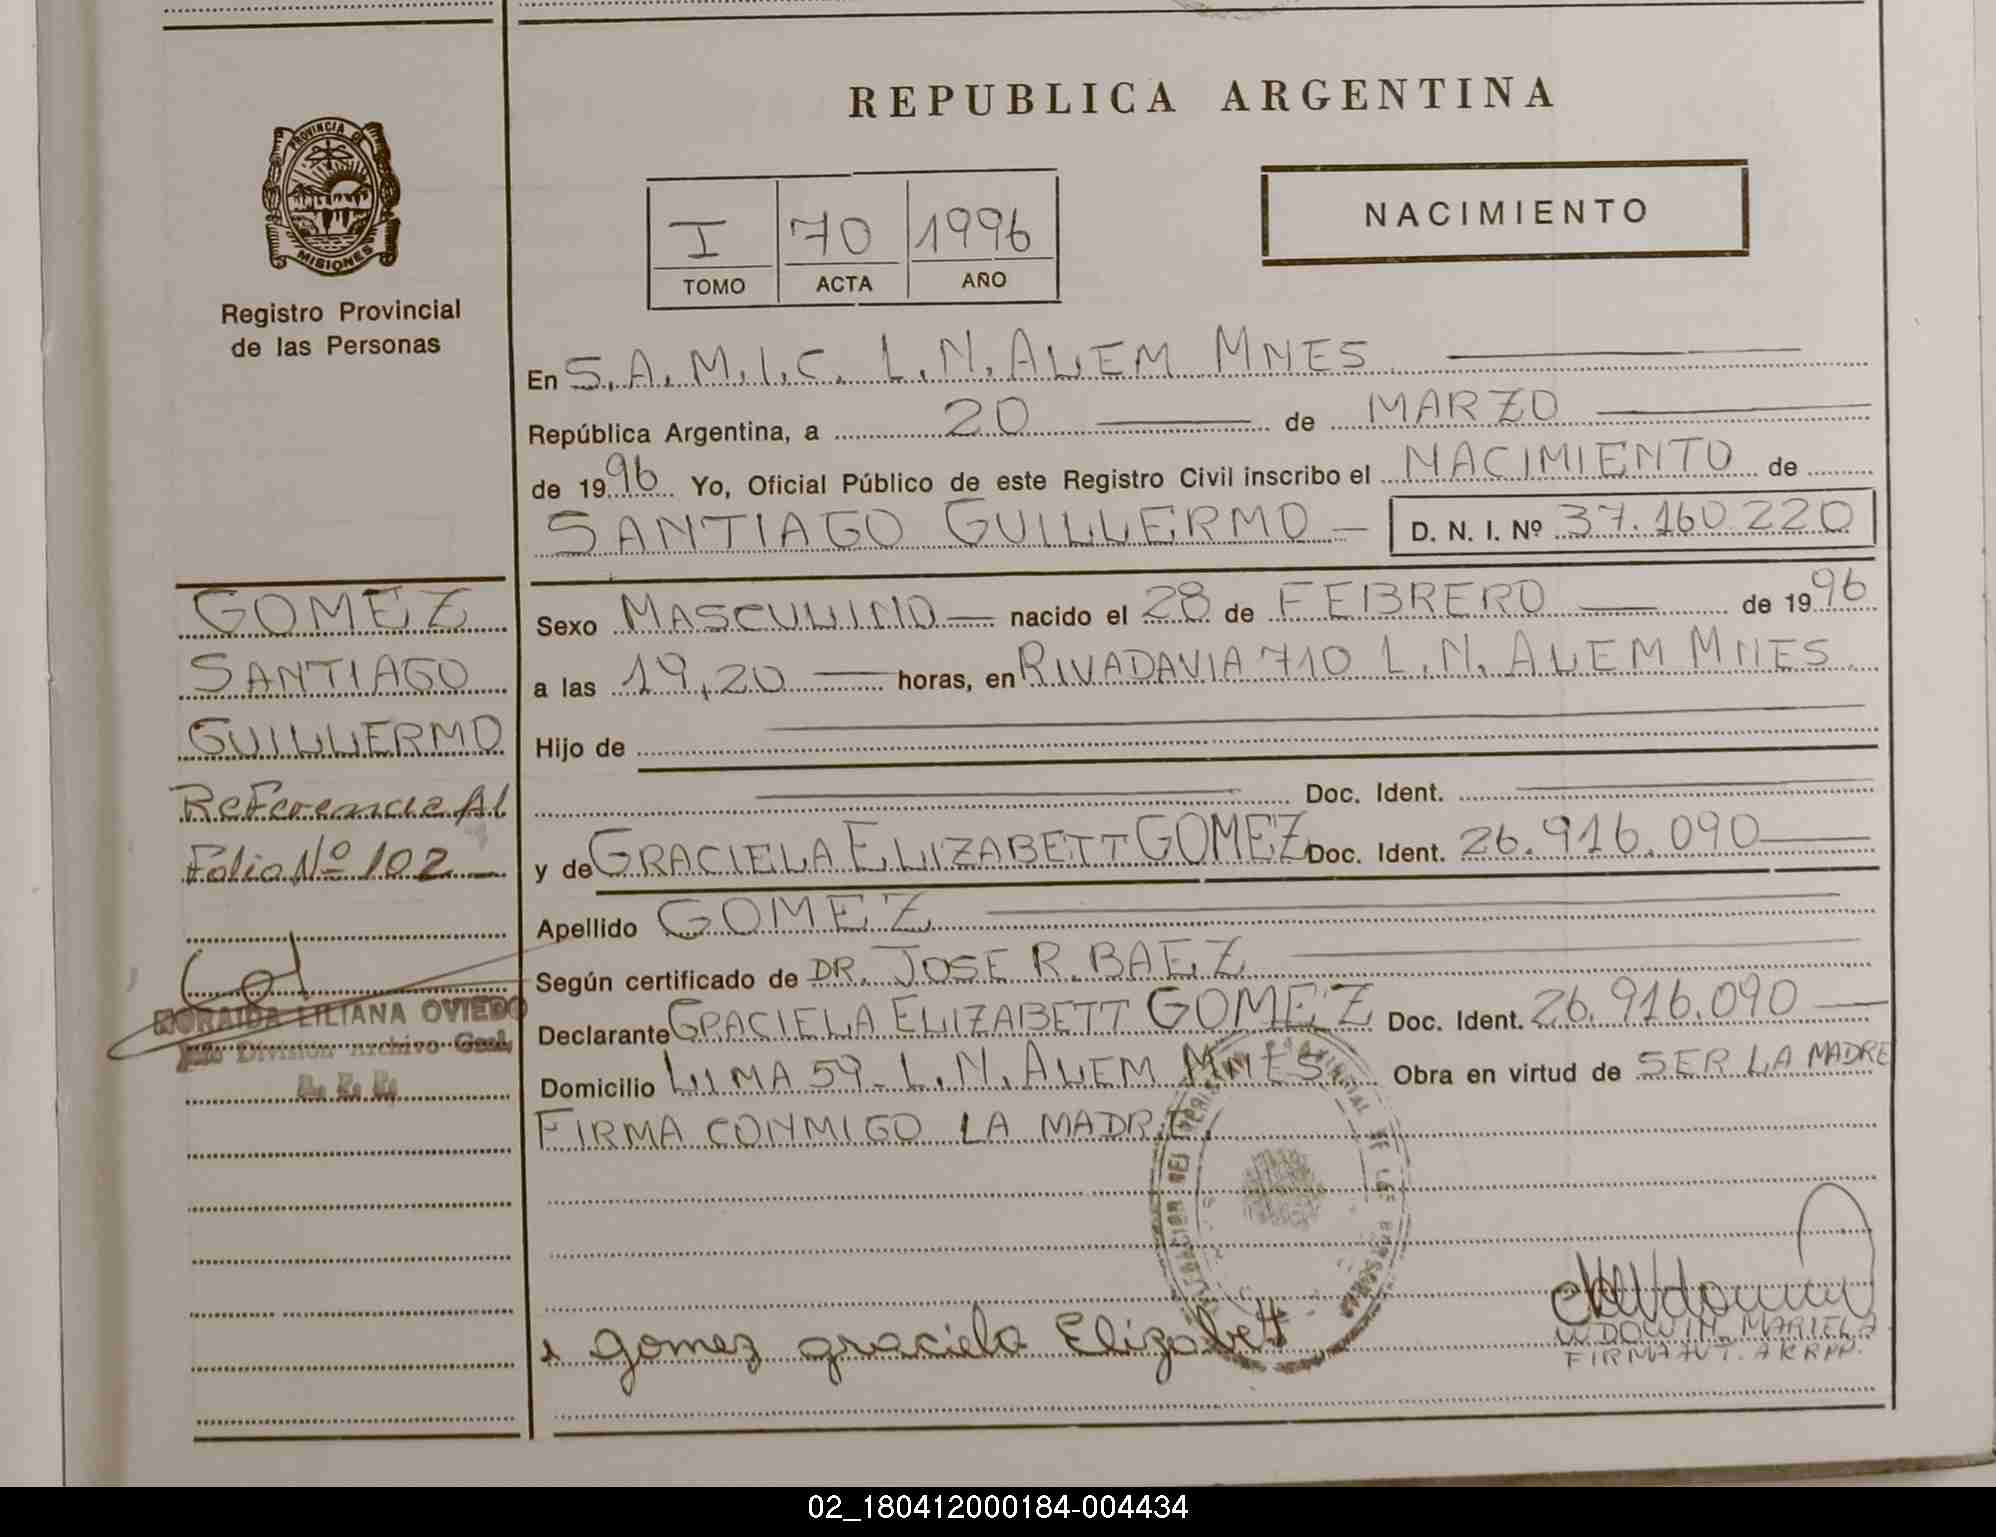 REPUBLICA ARGENTINA
PROVINCIA DE
MISIONES
Registro Provincial
de las Personas
I 70 1996
TOMO ACTA AÑO
NACIMIENTO
En S.A.M.I.C. L.N. ALEM MNES
República Argentina, a 20 de MARZO
de 1996 Yo, Oficial Público de este Registro Civil inscribo el NACIMIENTO de
SANTIAGO GUILLERMO — D. N. I. Nº 37.160.220
GOMEZ
SANTIAGO
GUILLERMO
Referencia Al
Folio Nº 102 —
NORAIDA LILIANA OVIEDO
Jefe División Archivo Gral.
Sexo MASCULINO — nacido el 28 de FEBRERO — de 1996
a las 19,20 — horas, en RIVADAVIA 710 L.N. ALEM MNES
Hijo de
Doc. Ident.
y de GRACIELA ELIZABETT GOMEZ Doc. Ident. 26.916.090 —
Apellido GOMEZ
Según certificado de DR. JOSE R. BAEZ
Declarante GRACIELA ELIZABETT GOMEZ Doc. Ident. 26.916.090 —
Domicilio LIMA 59 - L.N. ALEM MNES Obra en virtud de SER LA MADRE
FIRMA CONMIGO LA MADRE.
gomez graciela Elizabett
MARIELA
02_180412000184-004434